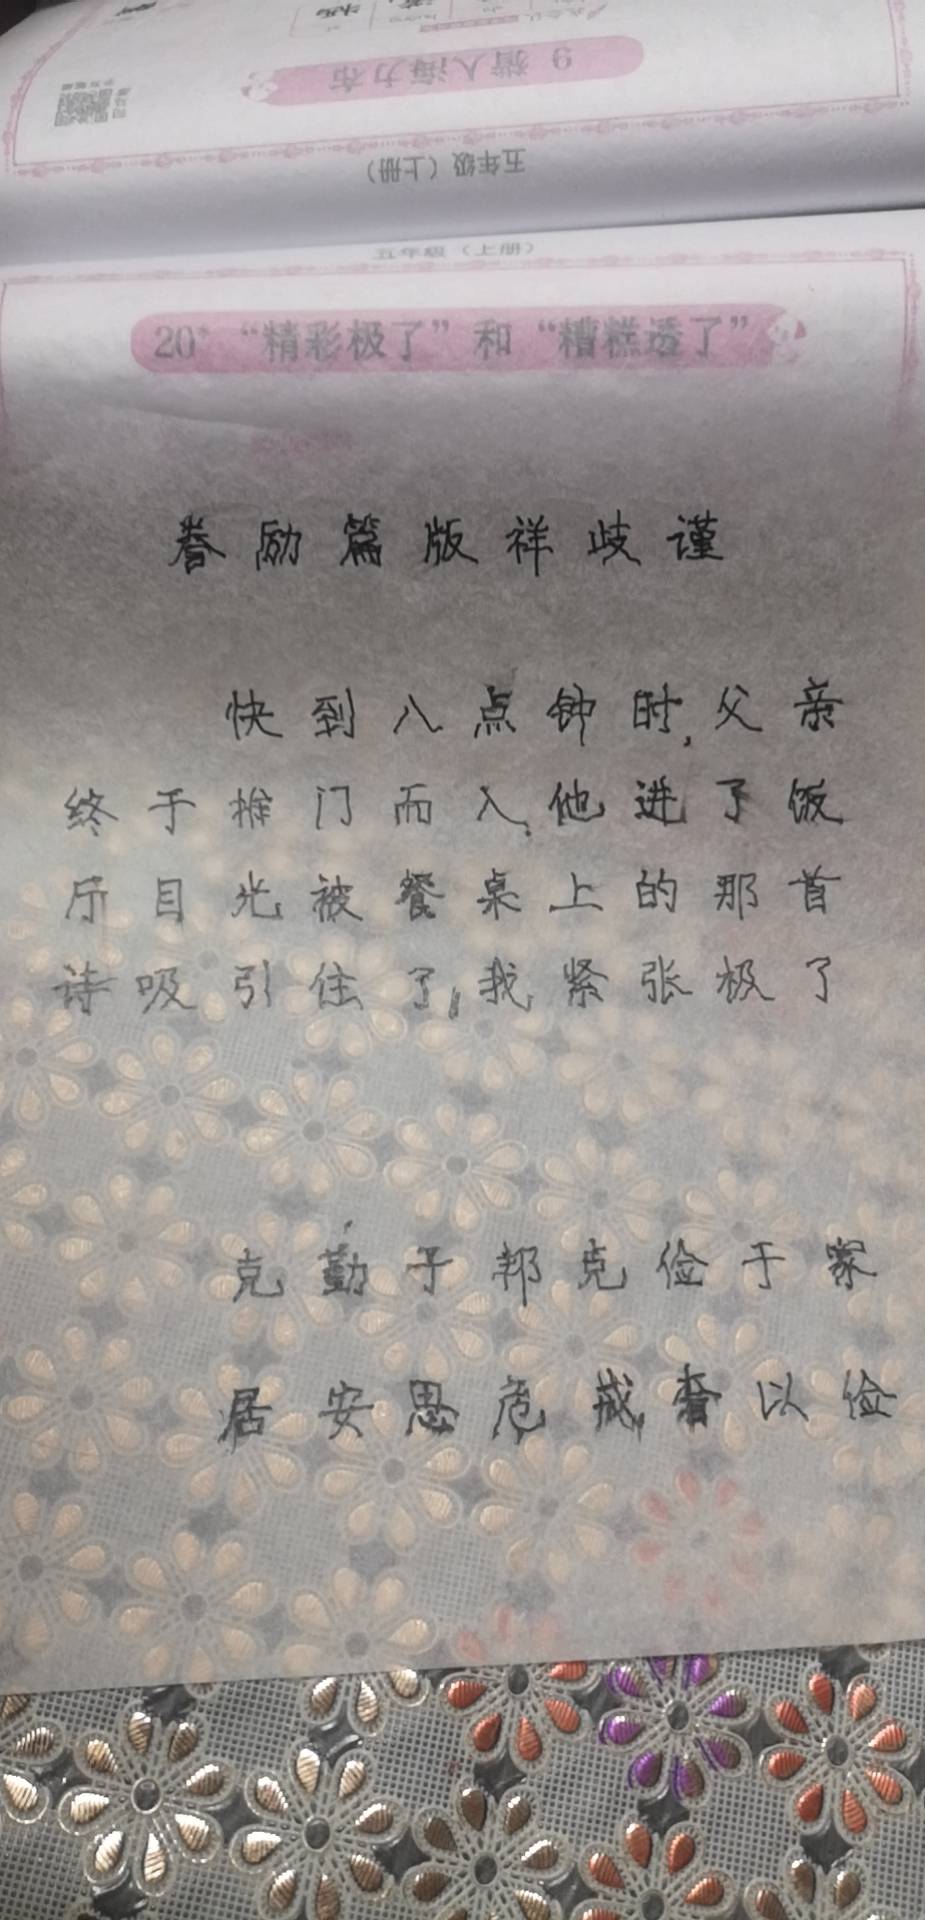 9 猎人海力布
五年级（上册）
五年级（上册）
20* “精彩极了”和“糟糕透了”
誊励篇版祥歧谨
快到八点钟时,父亲
终于推门而入.他进了饭
厅目光被餐桌上的那首
诗吸引住了,我紧张极了
克勤于邦克俭于家
居安思危戒奢以俭